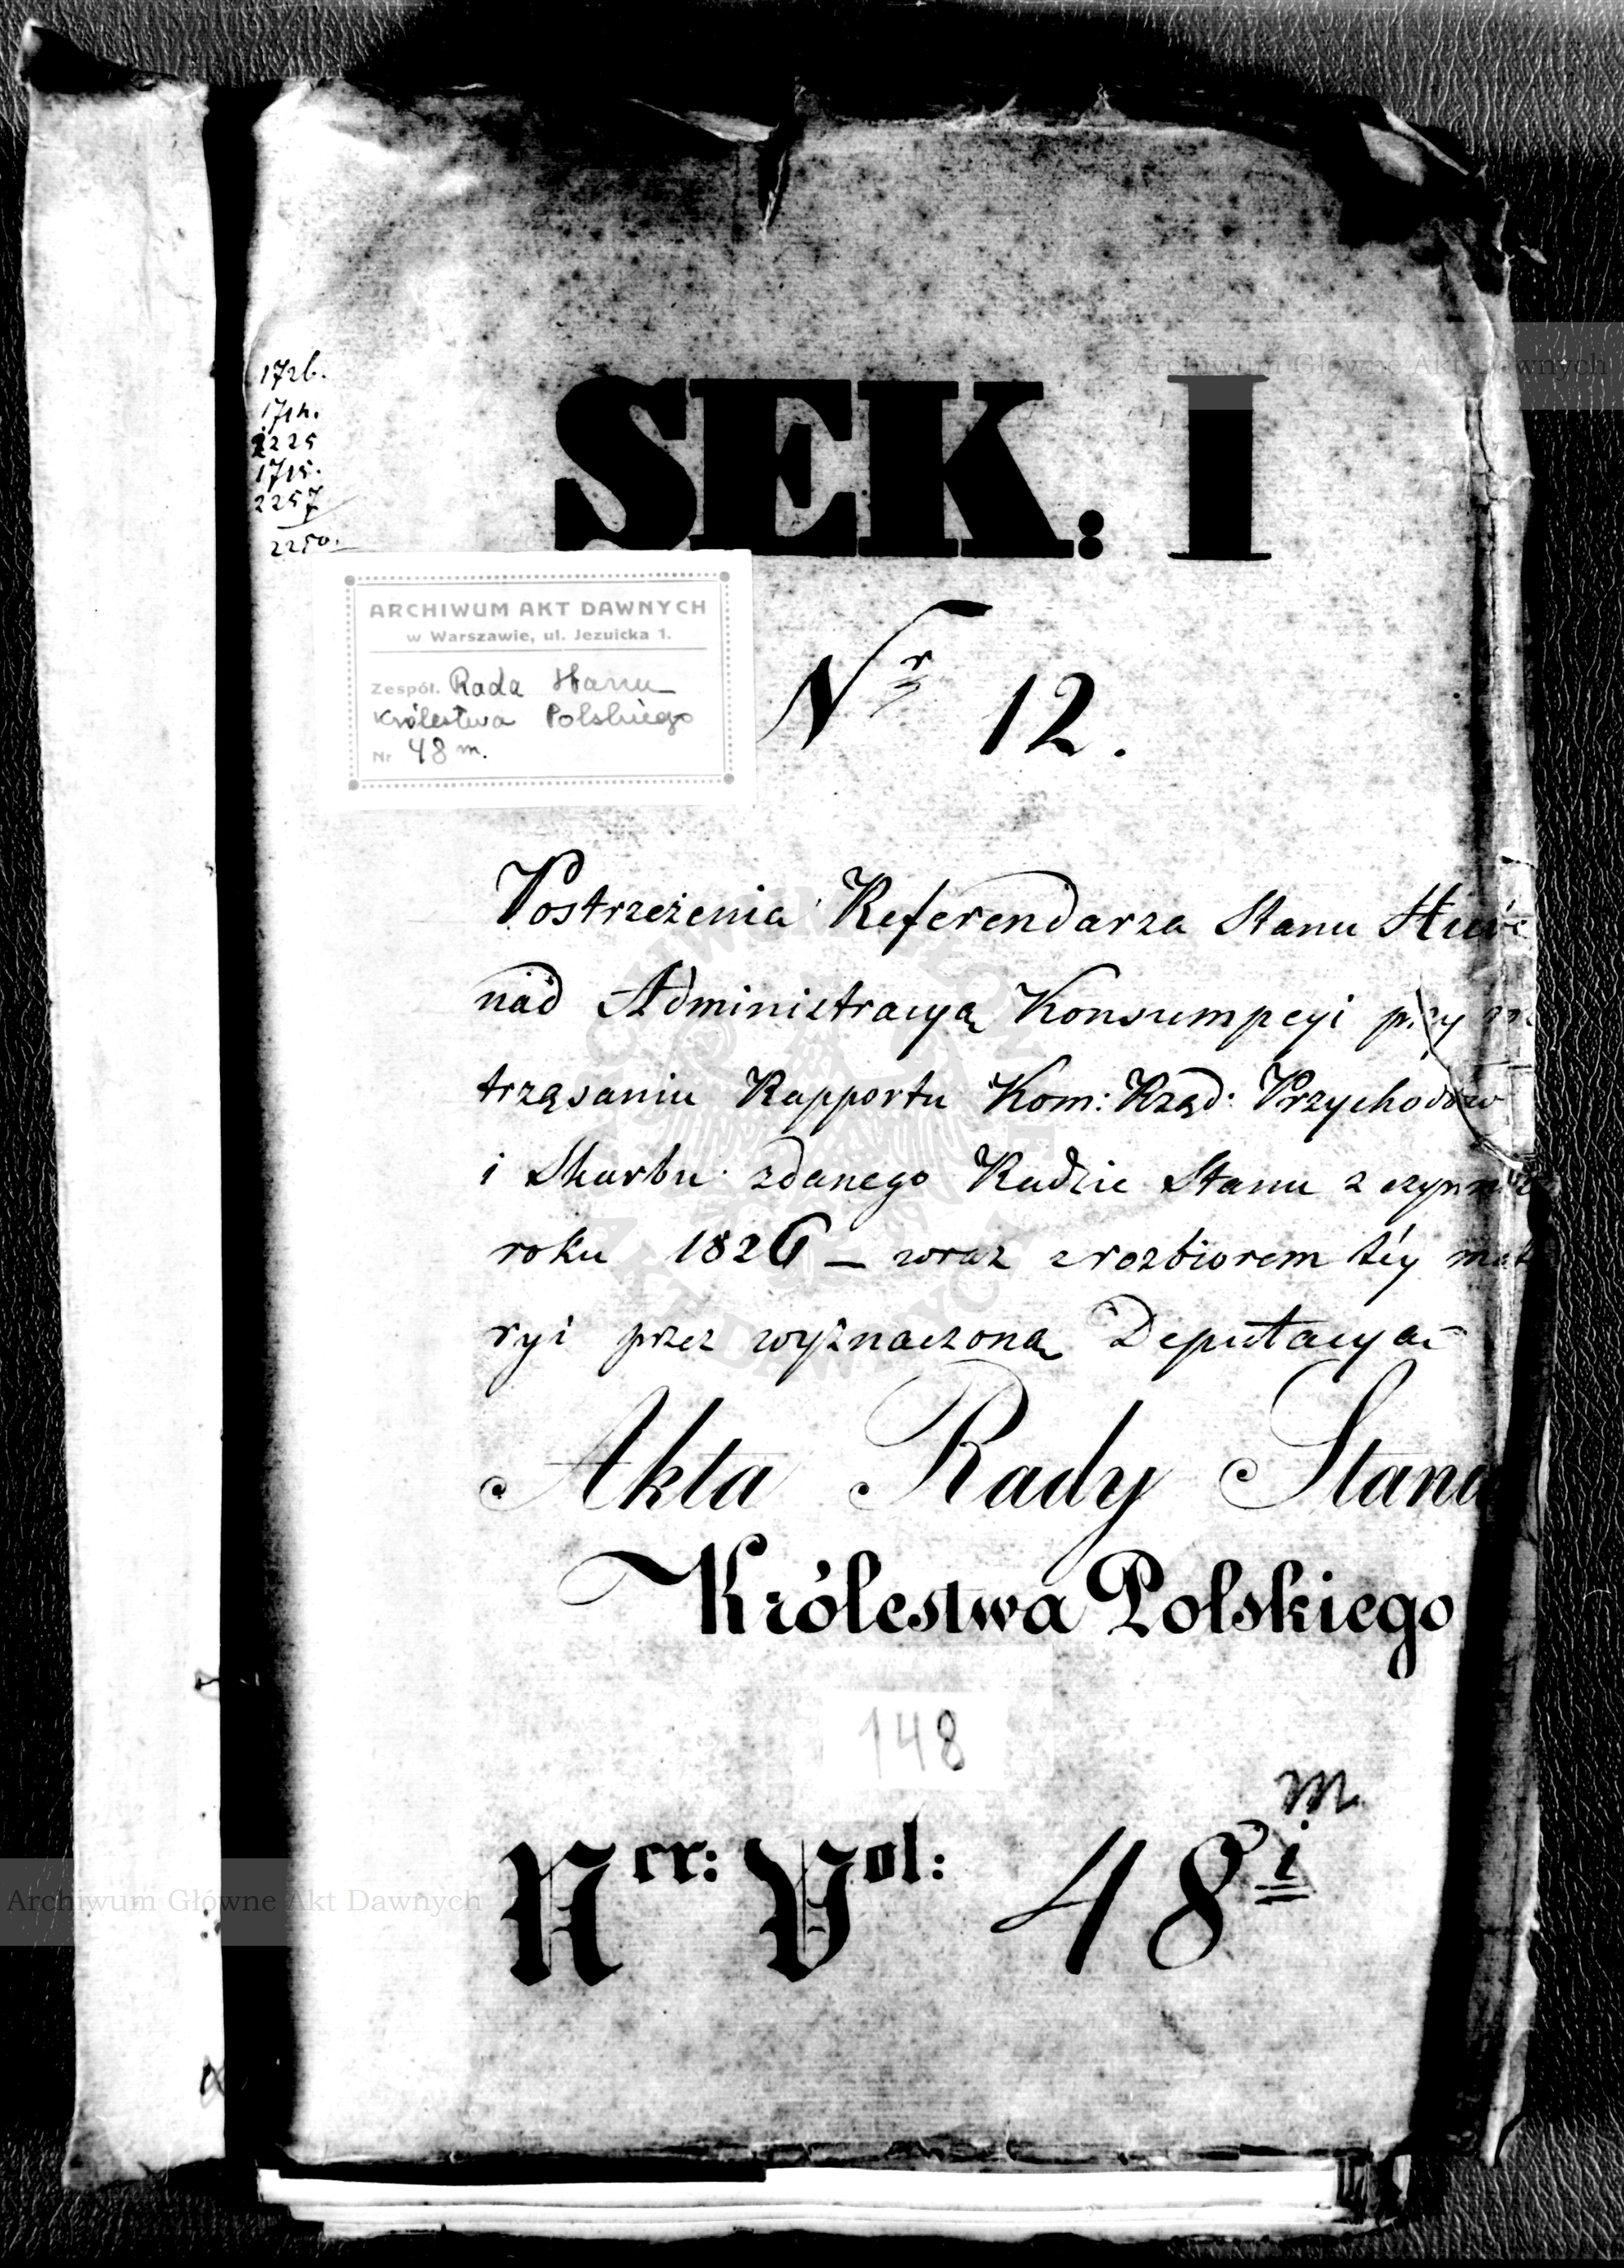 172b.
171h.
2225
1715.
2257
2250.
SEK: I
ARCHIWUM AKT DAWNYCH
w Warszawie, ul. Jezuicka 1.
Zespół. Rada Stanu
Królestwa Polskiego
Nr 48 m.
Nr 12.
Postrzeżenia Referendarza Stanu
nad Administracyą Konsumpcyi przy
trząsaniu Rapportu Kom: Rząd: Przychodów
i Skarbu zdanego Radzie Stanu z
roku 1826 — wraz z rozbiorem téy mat
ryi przez wyznaczoną Deputacyą
Akta Rady Stanu
Królestwa Polskiego
148
Ner: Vol: 48 i m.
Archiwum Główne Akt Dawnych
Archiwum Główne Akt Dawnych
ARCHIWUM GŁÓWNE AKT DAWNYCH